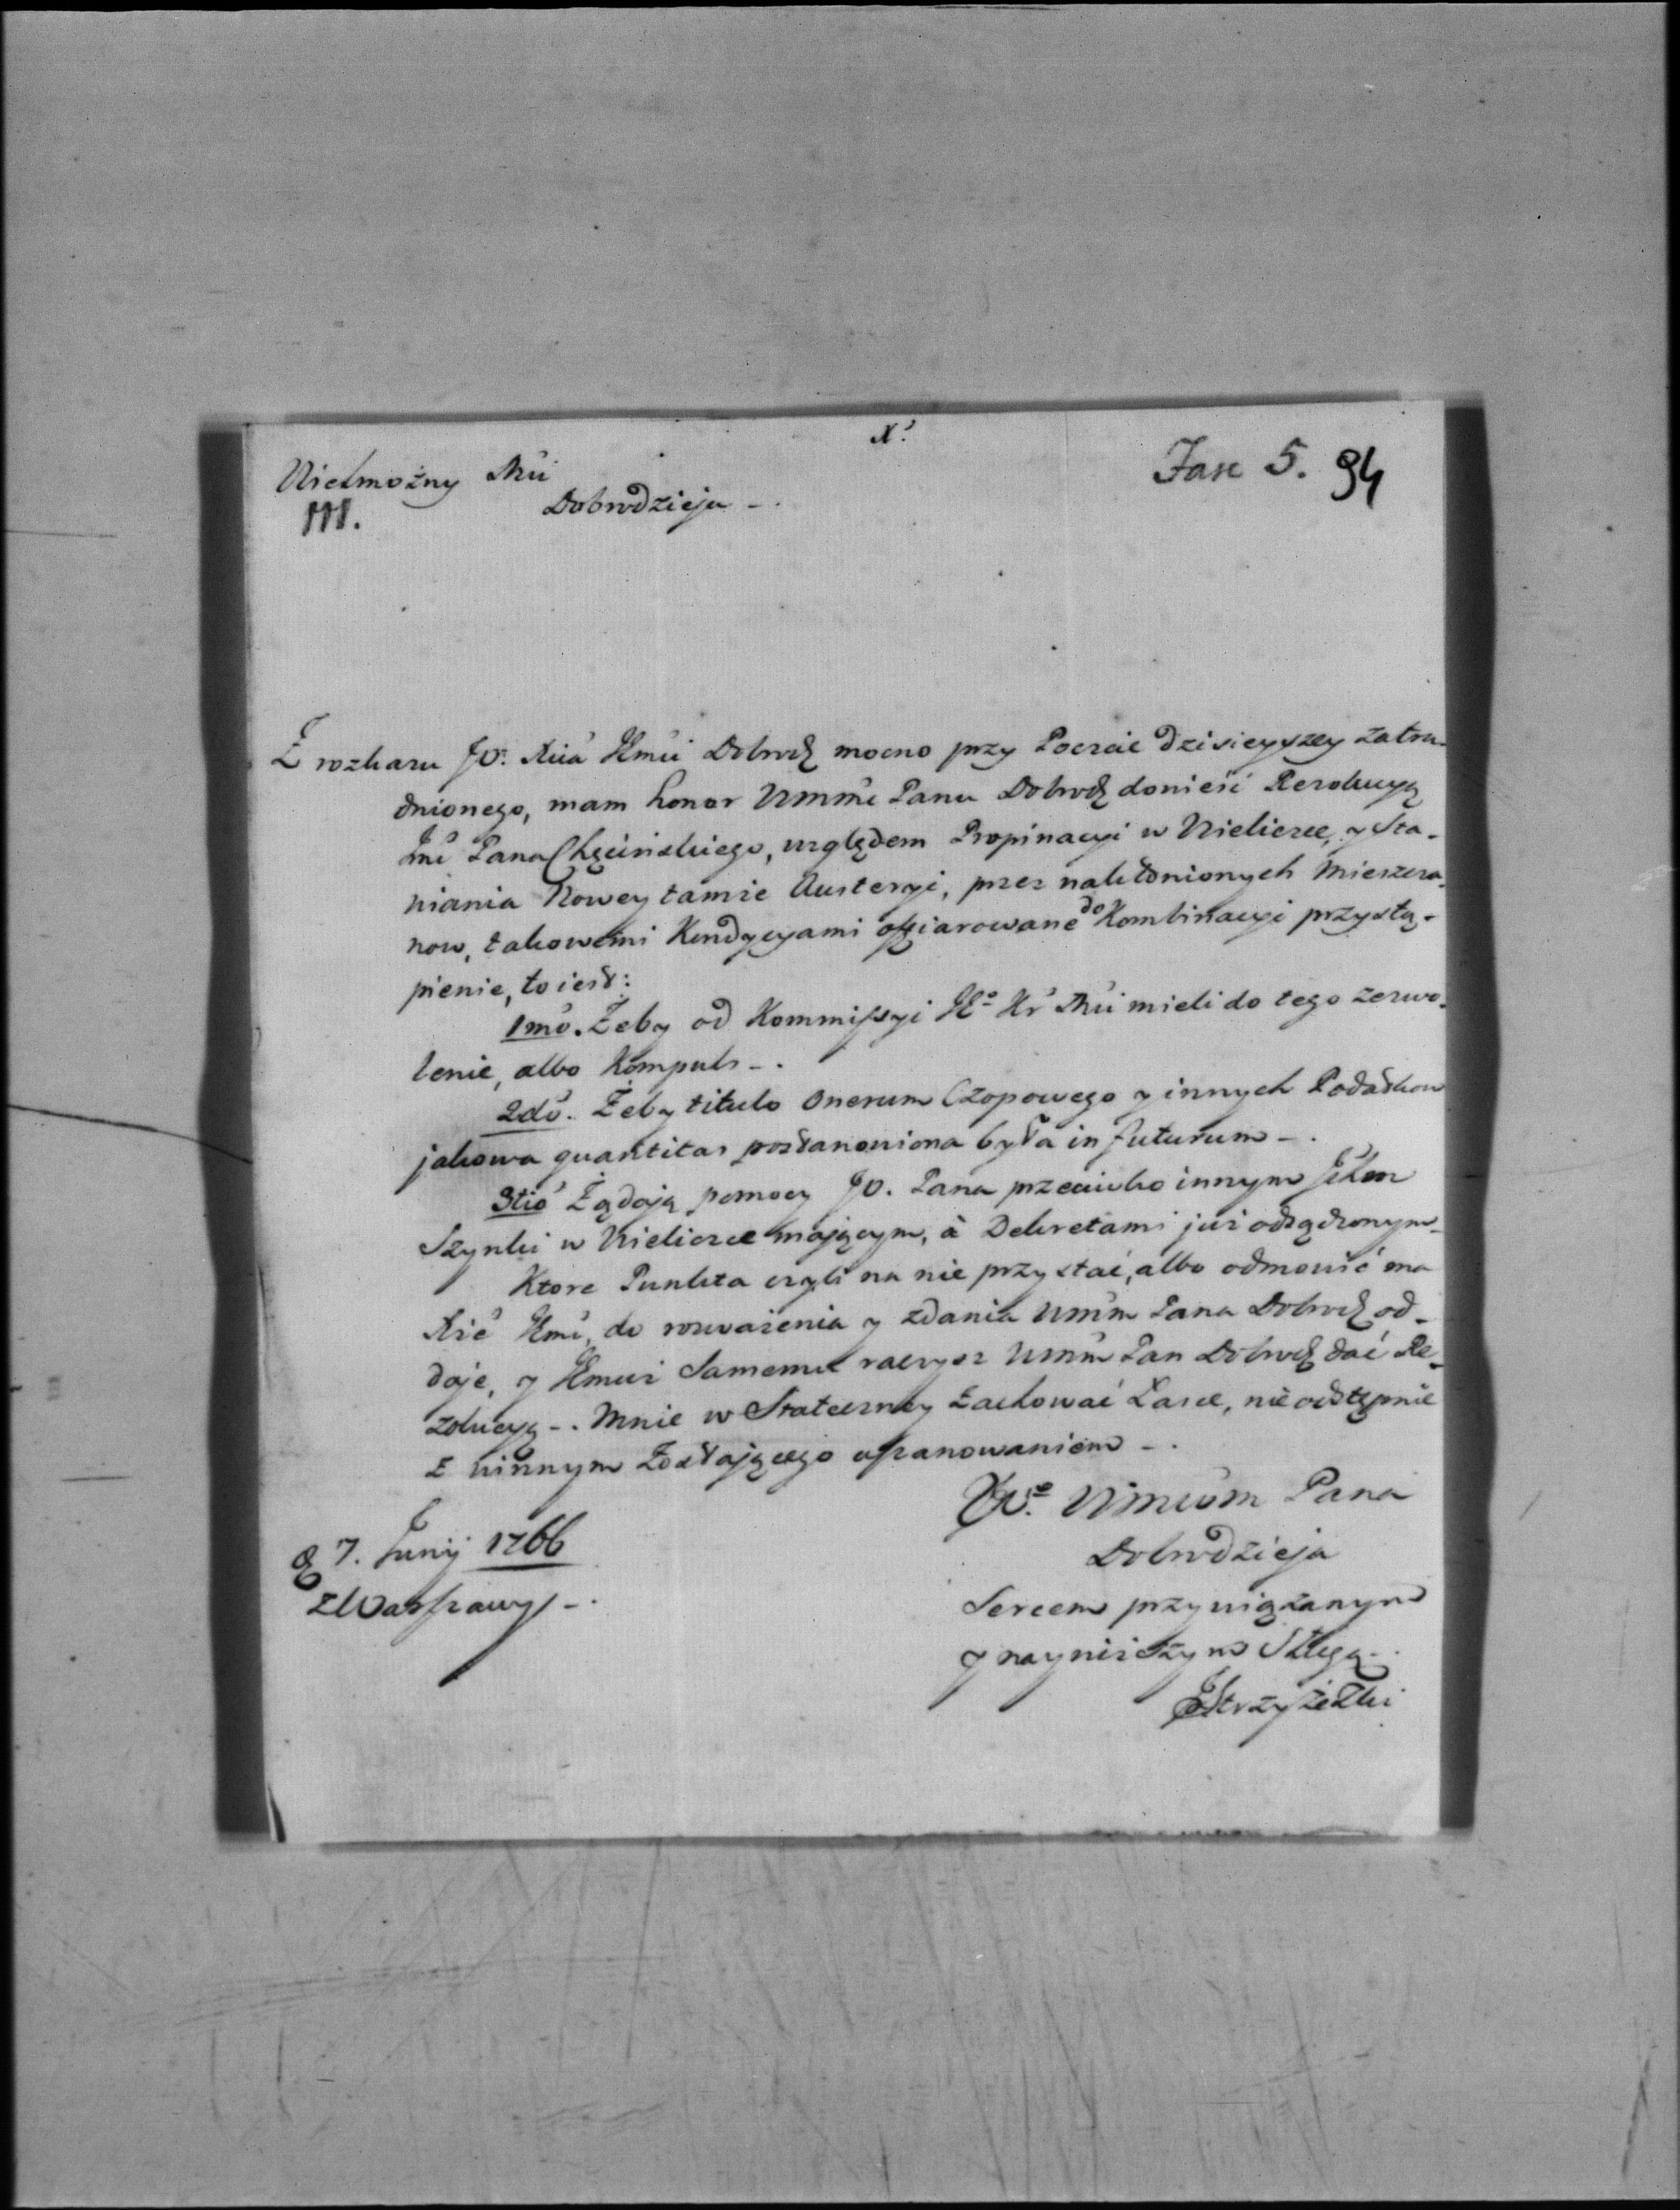 X.
Fasc 5. 94
Wielmożny Mći
Dobrodzieju -.
111.
Z rozkazu JO. Xcia Jmći Dobrodz mocno przy Poczcie dzisieyszey zatru-
dnionego, mam honor WmMć Panu Dobrodz donieść Rezolucyą
Jmć Pana Chęcińskiego, względem Propinacyi w Wieliczce, y Sta-
wiania Nowey tamże Austeryi, przez nakłonionych Mieszcza-
now, takowemi Kondycyami offiarowane do Kombinacyi przystą-
pienie, to iest:
1mo. Żeby od Kommissyi JKo Kr Mći mieli do tego zezwo-
lenie, albo Kompuls -.
2do. Żeby titulo Onerum Czopowego y innych Podatkow
jakowa quantitas postanowiona była in futurum -.
3tio Żądają pomocy JO. Pana przeciwko innym
Szynki w Wieliczce mającym, à Dekretami już odsądzonym -
Ktore Punkta czyli na nie przystać, albo odmowić ma
Xże Jmć, do rozważenia y zdania Wmm Pana Dobrodz od-
daje, y Jmuż Samemu raczysz Wmm Pan Dobrodz dać Re-
zolucyą -. Mnie w Stateczney zachować Łasce, nieodstępnie
z winnym Zostającego uszanowaniem -.
Wmm Pana
Dobrodzieja
Sercem przywiązanym
y nayniższym Sługą -.
D 7. Junij 1766
z Warszawy -.